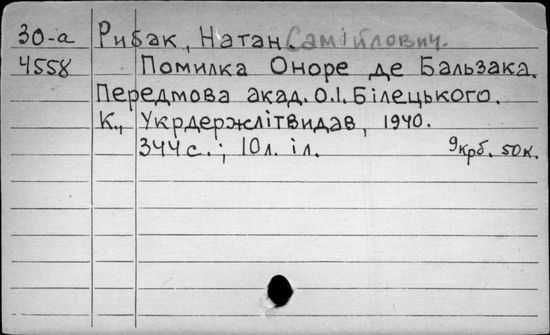 30-а Рибак, Натан Самійлович.
4558 Помилка Оноре де Бальзака.
Передмова акад. О.І. Білецького.
К., Укрдержлітвидав, 1940.
344 с.; 10 л. іл. 9 крб. 50 к.